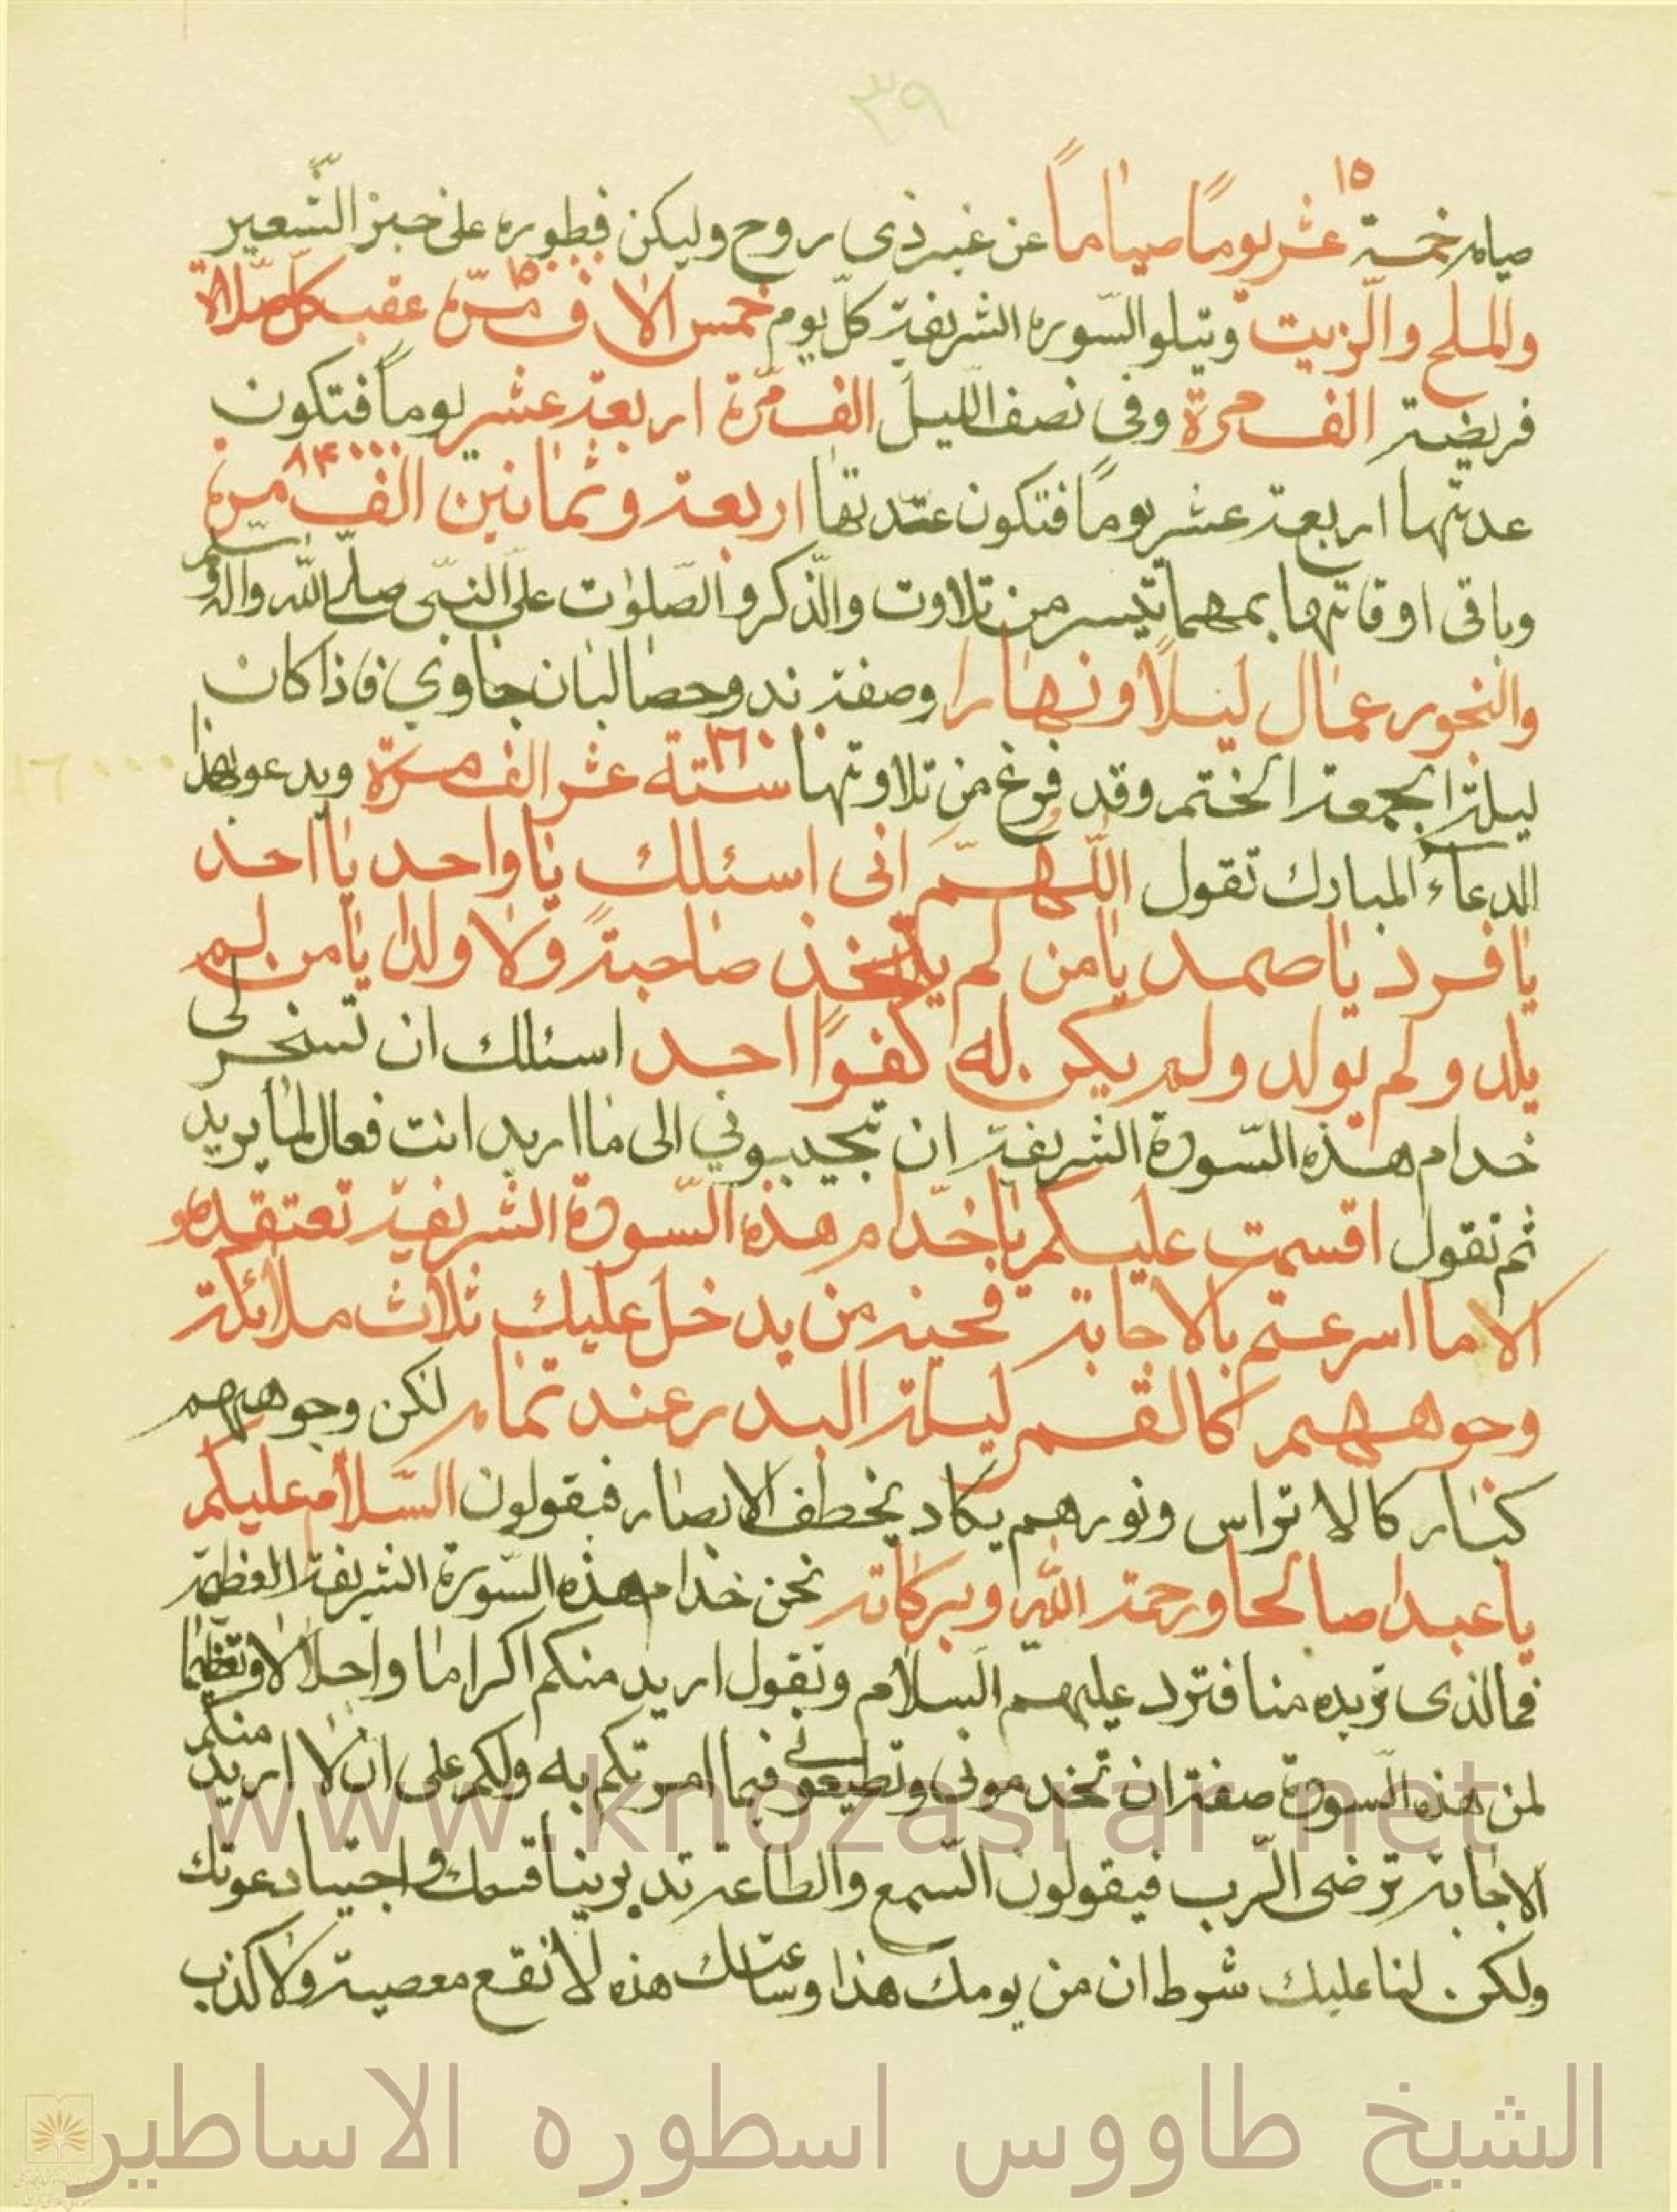 ٣٩
١٥
صيام خمسة عشر يومًا صياماً عن غير ذى روح وليكن فطوره على خبز الشّعير
والملح والزيت ويتلو السّوره الشريفة كلّ يوم خمس الاف مرّة عقب كل صلاة
فريضة الف مرة وفى نصف الليل الف مرّة اربعة عشر يوماً فتكون
٨٤٠٠٠
عدتها اربعة عشر يومًا فتكون عتدتها اربعة وثمانين الف مرة
وباقى اوقاتها بمهما تيسر من تلاوت والذكر والصّلوٰت على النبّى صلى الله واله وسلم
والبخور عمال ليلاً ونهارا وصفته ند وحصا لبان جاوي فاذا كان
ليلة الجمعة الختم وقد فرغ من تلاوتها ستة عشر الف مرة ويدعو بهذا
الدعاء المبارك تقول اللّهمّ انى اسئلك يا واحد يا احد
يا فرد يا صمد يا من لم يتّخذ صاحبةً ولا ولدا يا من لم
يلد ولم يولد ولم يكن له كفوًا احد اسئلك ان تسخر لى
خدام هذه السّورة الشريفة ان تجيبوني الى ما اريد انت فعال لما يريد
ثم تقول اقسمت عليكم يا خدّام هذه السّورة الشريفة
الا ما اسرعتم بالاجابة فحينه من يدخل عليك ثلاث ملائكة
وجوههم كالقمر ليلة البدر عند تمام لكن وجوههم
كبار كالاتراس ونورهم يكاد يخطف الابصار فيقولون السّلام عليكم
يا عبدا صالحا ورحمة الله وبركاته نحن خدام هذه السّورة الشريفة العظيمة
فما الذى تريده منا فترد عليهم السلام وتقول اريد منكم اكراما واجلالا وتعظيما
لمن هذه السورة صفته ان تخدمونى وتطيعونى فيما امرتكم به ولكم على ان لا اريد منكم
الاجابة ترضى الرب فيقولون السّمع والطاعة قسمك واجبنا دعوتك
ولكن لنا عليك شرط ان من يومك هذا وساعتك هذه لا تقع معصية ولا كذب
www.knozasrar.net
الشيخ طاووس اسطوره الاساطير